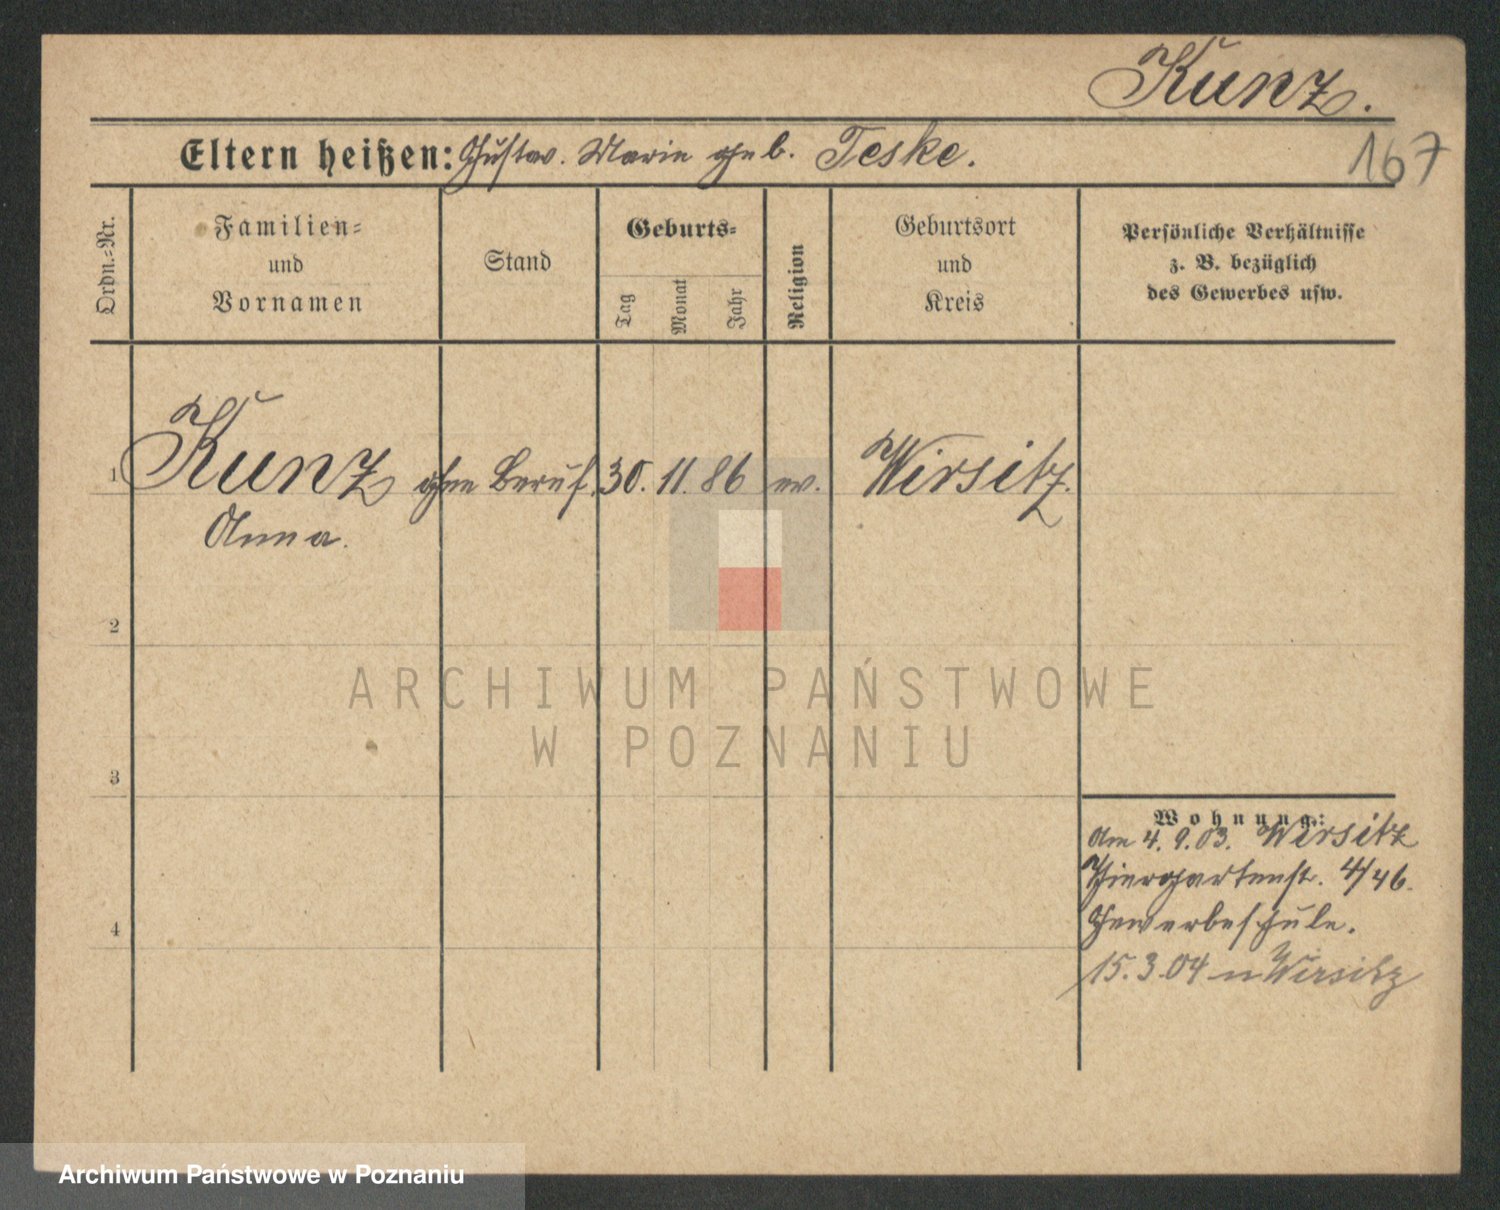 Kunz.
Eltern heißen: Gustav. Marie geb. Teske.
167
Ordn.=Nr.
Familien=
und
Vornamen
Stand
Geburts=
Tag
Monat
Jahr
Religion
Geburtsort
und
Kreis
Persönliche Verhältnisse
z. B. bezüglich
des Gewerbes usw.
1 Kunz ohne Beruf. 30. 11. 86 ev. Wirsitz.
Anna.
2
ARCHIWUM PAŃSTWOWE
W POZNANIU
3
Wohnung:
Am 4. 9. 03. Wirsitz
Thiergartenst. 4/46.
Gewerbeschule.
4
15. 3. 04 n Wirsitz
Archiwum Państwowe w Poznaniu